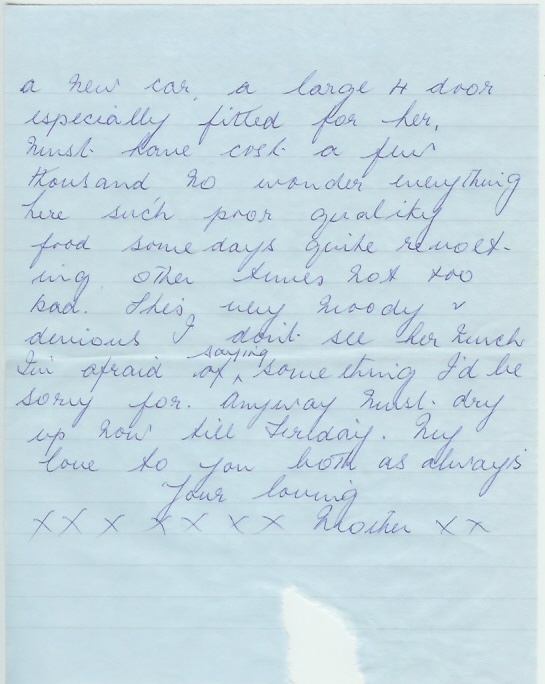 a new car, a large 4 door
especially fitted for her,
must have cost a few
thousand no wonder everything
here such poor quality
food some days quite revolt-
ing other times not too
bad. very moody &
devious I don't see her much
I'm afraid of saying something I'd be
sorry for. Anyway must dry
up now till. My
love to you both as always
Your loving
X X X X X X X Mother X X